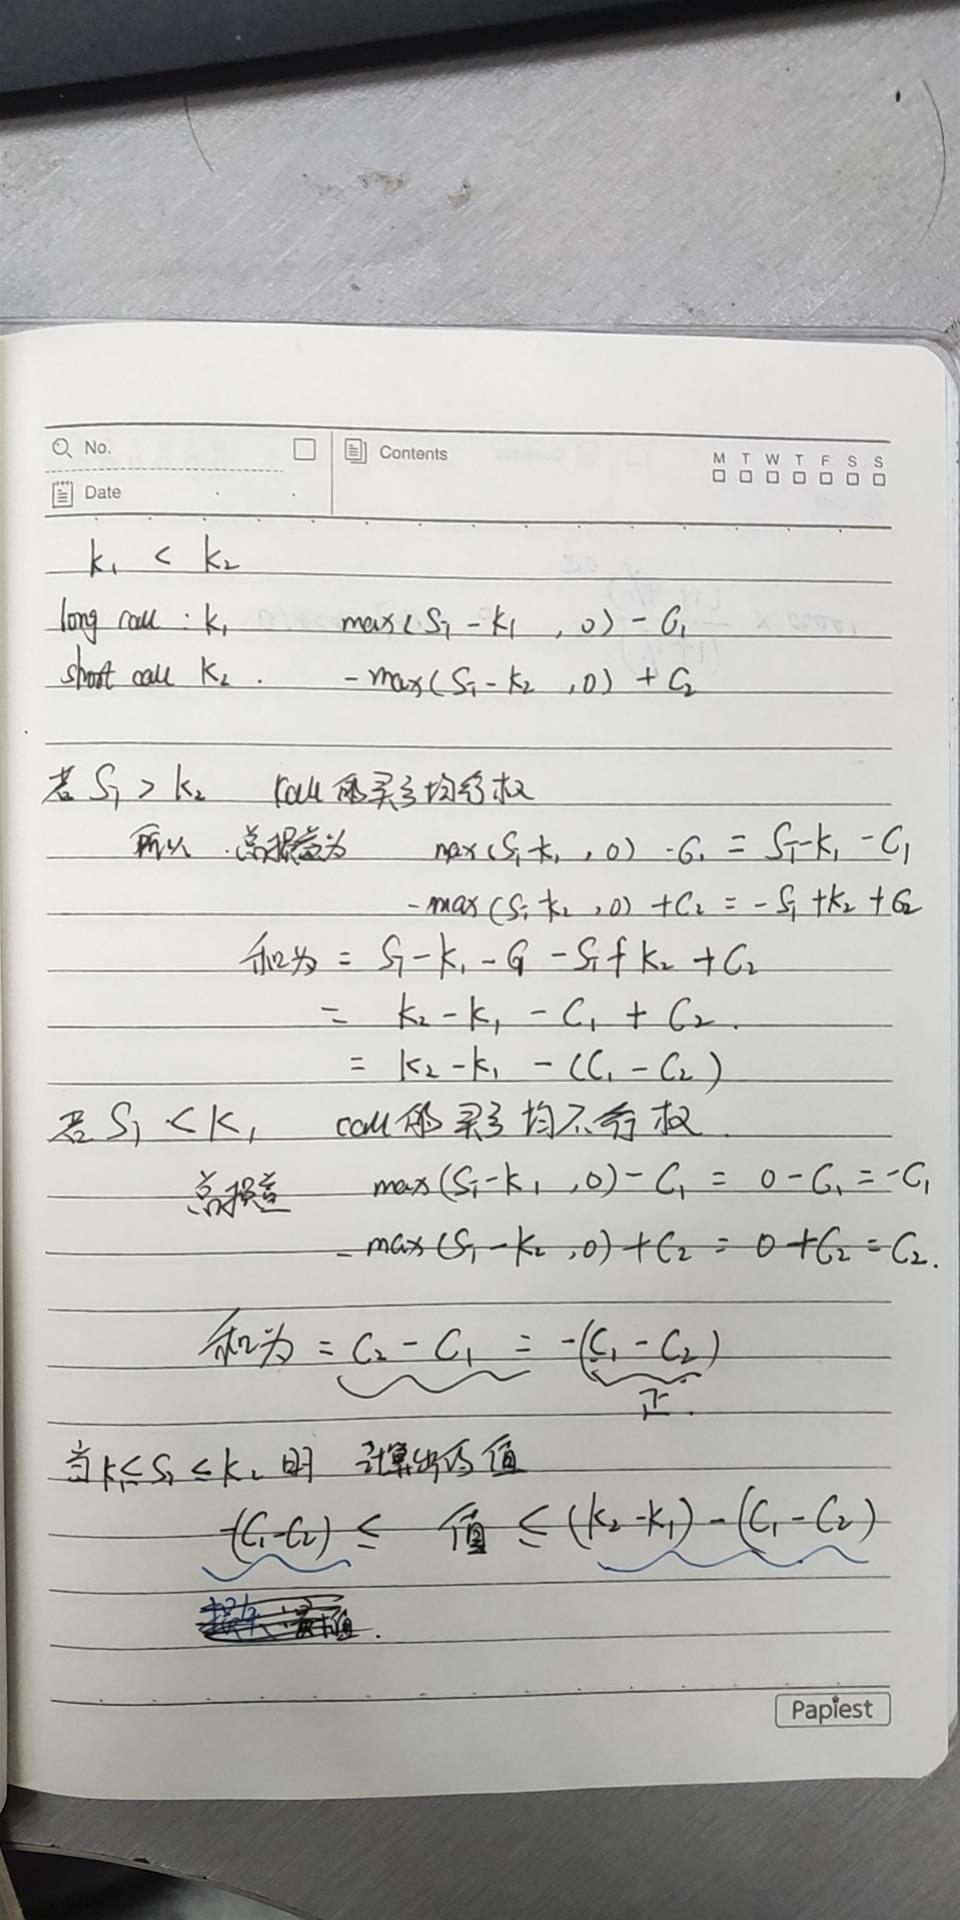 No.
Contents
M T W T F S S
Date
k₁ < k₂
long call : k₁ max(S_T - k₁ , 0) - C₁
short call k₂ . - max(S_T - k₂ , 0) + C₂
若 S_T > k₂ call 的买方均行权
所以 总损益为 max(S_T - k₁ , 0) - C₁ = S_T - k₁ - C₁
- max(S_T - k₂ , 0) + C₂ = - S_T + k₂ + C₂
和为 = S_T - k₁ - C₁ - S_T + k₂ + C₂
= k₂ - k₁ - C₁ + C₂ .
= k₂ - k₁ - (C₁ - C₂)
若 S_T < K₁ call 的买方均不行权 .
总损益 max(S_T - k₁ , 0) - C₁ = 0 - C₁ = -C₁
- max(S_T - k₂ , 0) + C₂ = 0 + C₂ = C₂ .
和为 = C₂ - C₁ = -(C₁ - C₂)
正 .
当 k₁ ≤ S_T ≤ k₂ 时 计算出的值
-(C₁ - C₂) ≤ 值 ≤ (k₂ - k₁) - (C₁ - C₂)
Papiest